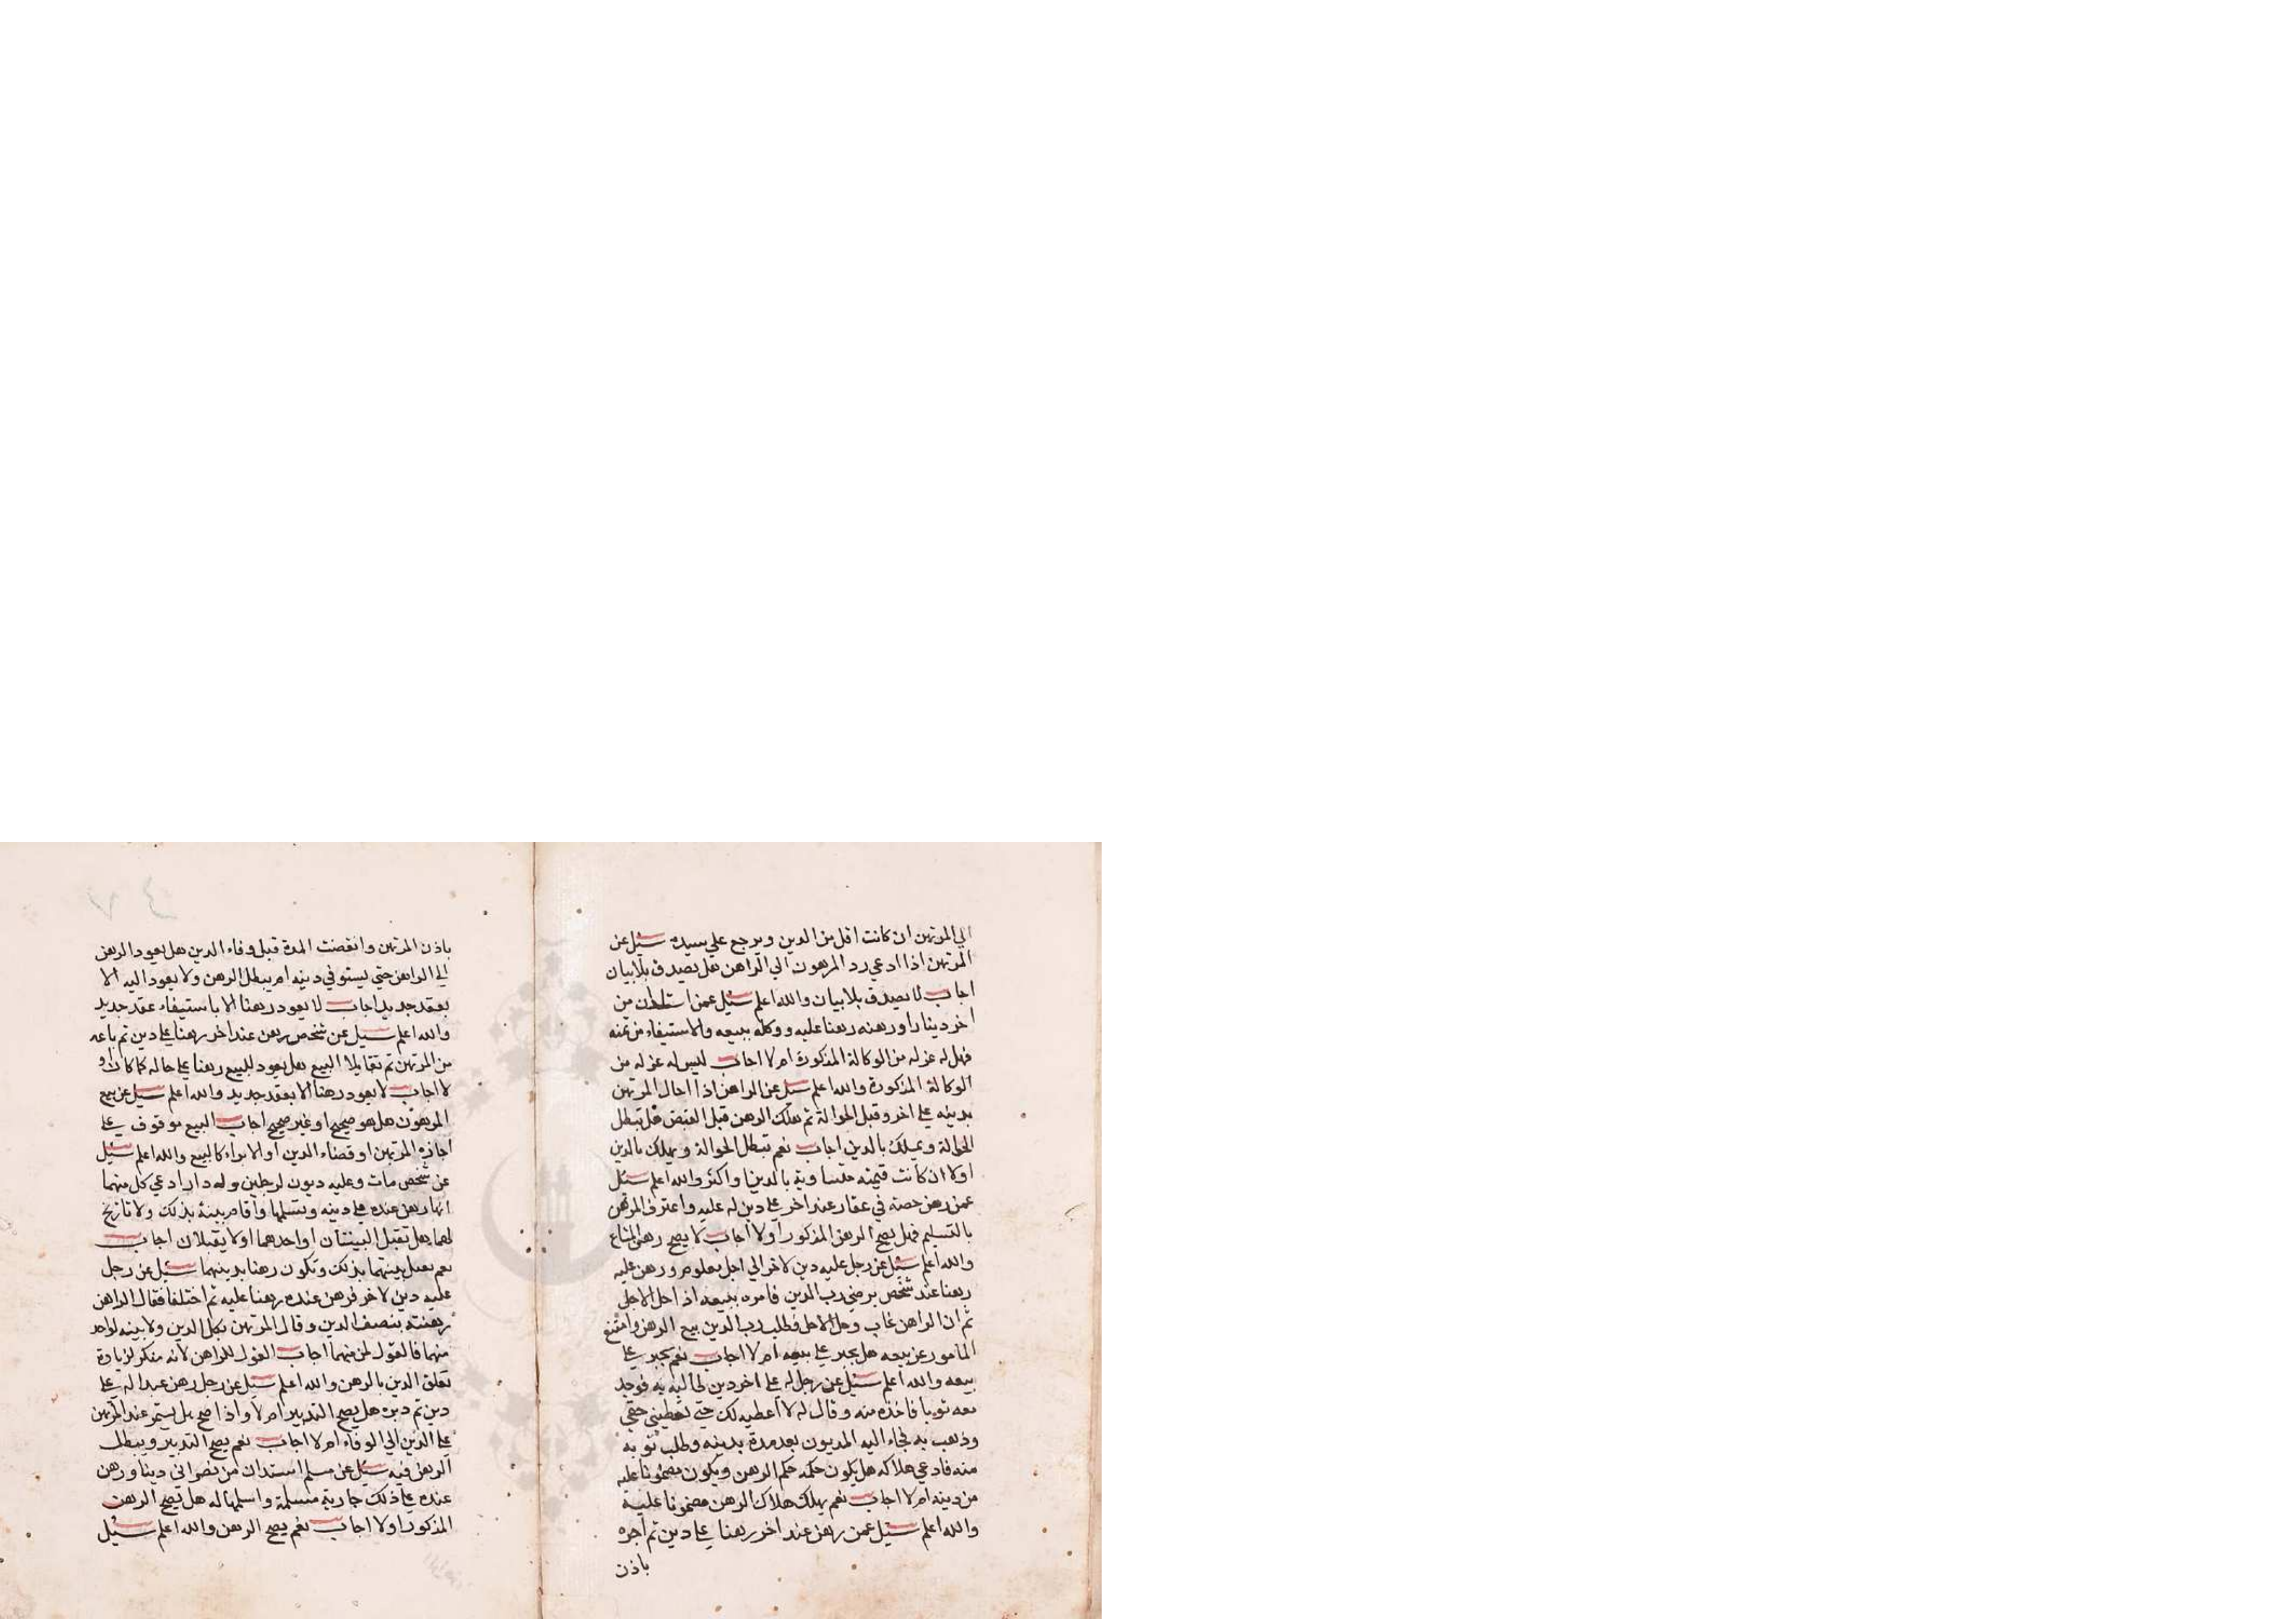 الي المرتهن ان كانت اقل من الدين ويرجع علي سيده سئل عن
المرتهن اذا ادعي رد المرهون الي الراهن هل يصدق بلا بيان
اجاب لا يصدق بلا بيان والله اعلم سئل عمن استدان من
اخر دينارا ورهنه رهنا عليه ووكله ببيعه والاستيفاء من ثمنه
فهل له عزله من الوكالة المذكورة ام لا اجاب ليس له عزله من
الوكالة المذكورة والله اعلم سئل عن الراهن اذا احال المرتهن
بدينه علي اخر وقبل الحوالة ثم هلك الرهن قبل القبض هل تبطل
الحوالة ويهلك بالدين اجاب نعم تبطل الحوالة ويهلك بالدين
اولا ان كانت قيمته متساوية بالدين او اكثر والله اعلم سئل
عمن رهن حصته في عقار عند اخر علي دين له عليه واعترف المرتهن
بالتسليم فهل يصح الرهن المذكور اولا اجاب لا يصح رهن المشاع
والله اعلم سئل عن رجل عليه دين لاخر الي اجل معلوم ورهن عليه
رهنا عند شخص برضي رب الدين فامره ببيعه اذا حل الاجل
ثم ان الراهن غاب وحل الاجل فطلب رب الدين بيع الرهن وامتنع
المامور عن بيعه هل يجبر علي بيعه ام لا اجاب نعم يجبر علي
بيعه والله اعلم سئل عن رجل له علي اخر دين فوجد
معه ثوبا فاخذه منه وقال له لا اعطيه لك حتي تعطيني حقي
وذهب به فجاء اليه المديون بعد مدة بدينه وطلب ثوبه
منه فادعي هلاكه هل يكون حكمه حكم الرهن ويكون مضمونا عليه
من دينه ام لا اجاب نعم يهلك هلاك الرهن مضمونا عليه
والله اعلم سئل عمن رهن عند اخر رهنا علي دين ثم اجره
باذن
باذن المرتهن وانقضت المدة قبل وفاء الدين هل يعود الرهن
الي الراهن حتي يستوفي دينه ام يبطل الرهن ولا يعود اليه الا
بعقد جديد اجاب لا يعود رهنا الا باستيفاء عقد جديد
والله اعلم سئل عن شخص رهن عند اخر رهنا علي دين ثم باعه
من المرتهن ثم تقايلا البيع هل يعود المبيع رهنا علي حاله كما كان او
لا اجاب لا يعود رهنا الا بعقد جديد والله اعلم سئل عن بيع
المرهون هل هو صحيح او غير صحيح اجاب البيع موقوف علي
اجازة المرتهن او قضاء الدين او الابراء كالبيع والله اعلم سئل
عن شخص مات وعليه ديون لرجلين وله دار ادعي كل منهما
انها رهن عنده علي دينه وتسلمها واقام بينة بذلك ولا تاريخ
لهما هل تقبل البينتان او احدهما اولا يقبلان اجاب
نعم تقبل بينتهما بذلك وتكون رهنا بدينهما سئل عن رجل
عليه دين لاخر فرهن عنده رهنا عليه ثم اختلفا فقال الراهن
رهنته بنصف الدين وقال المرتهن بكل الدين ولا بينه لواحد
منهما فالقول لمن منهما اجاب القول للراهن لانه منكر لزيادة
تعلق الدين بالرهن والله اعلم سئل عن رجل رهن عبدا له علي
دين ثم دبره هل يصح التدبير ام لا واذا صح هل يستمر عند المرتهن
علي الدين الي الوفاء ام لا اجاب نعم يصح التدبير ويبطل
الرهن فيه سئل عن مسلم استدان من نصراني دينا ورهن
عنده علي ذلك جارية مسلمة واسلمها له هل يصح الرهن
المذكور اولا اجاب نعم يصح الرهن والله اعلم سئل